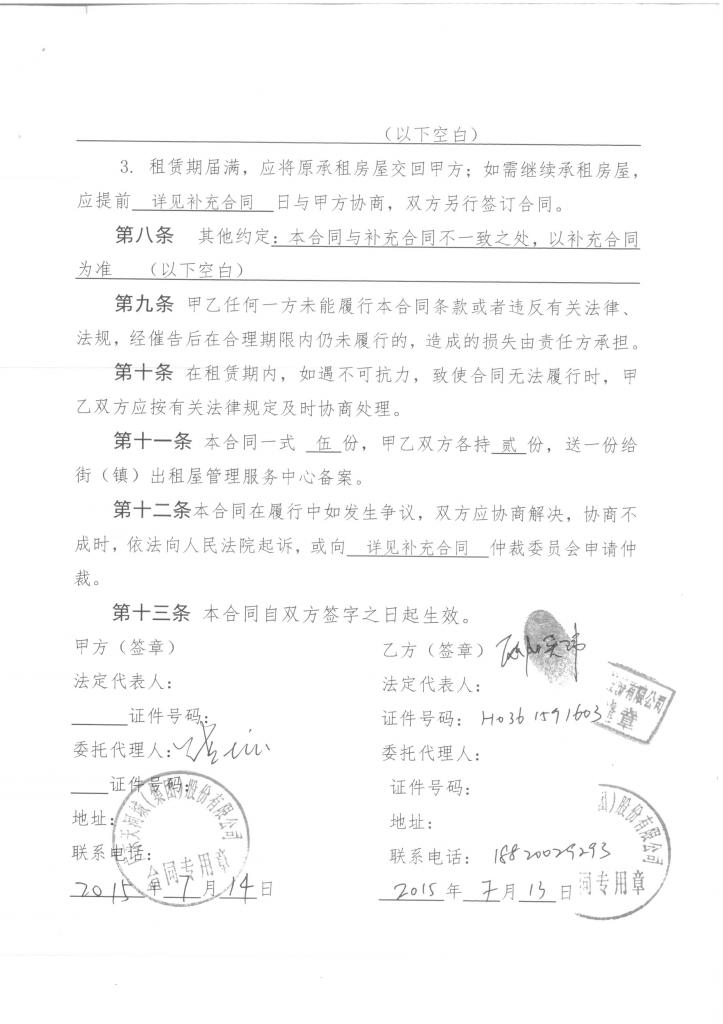 （以下空白）
3. 租赁期届满，应将原承租房屋交回甲方；如需继续承租房屋，
应提前 详见补充合同 日与甲方协商，双方另行签订合同。
第八条 其他约定：本合同与补充合同不一致之处，以补充合同
为准 （以下空白）
第九条 甲乙任何一方未能履行本合同条款或者违反有关法律、
法规，经催告后在合理期限内仍未履行的，造成的损失由责任方承担。
第十条 在租赁期内，如遇不可抗力，致使合同无法履行时，甲
乙双方应按有关法律规定及时协商处理。
第十一条 本合同一式 伍 份，甲乙双方各持 贰 份，送一份给
街（镇）出租屋管理服务中心备案。
第十二条本合同在履行中如发生争议，双方应协商解决，协商不
成时，依法向人民法院起诉，或向 详见补充合同 仲裁委员会申请仲
裁。
第十三条 本合同自双方签字之日起生效。
甲方（签章）
法定代表人：
证件号码：
委托代理人：
证件号码：
地址：
联系电话：
2015 年 7 月 14 日
天河城(集团)股份有限公司
合同专用章
乙方（签章）
法定代表人：
证件号码： H0361591603
委托代理人：
证件号码：
地址：
联系电话： 18820029293
2015 年 7 月 13 日
份有限公司
章
)股份有限公司
同专用章